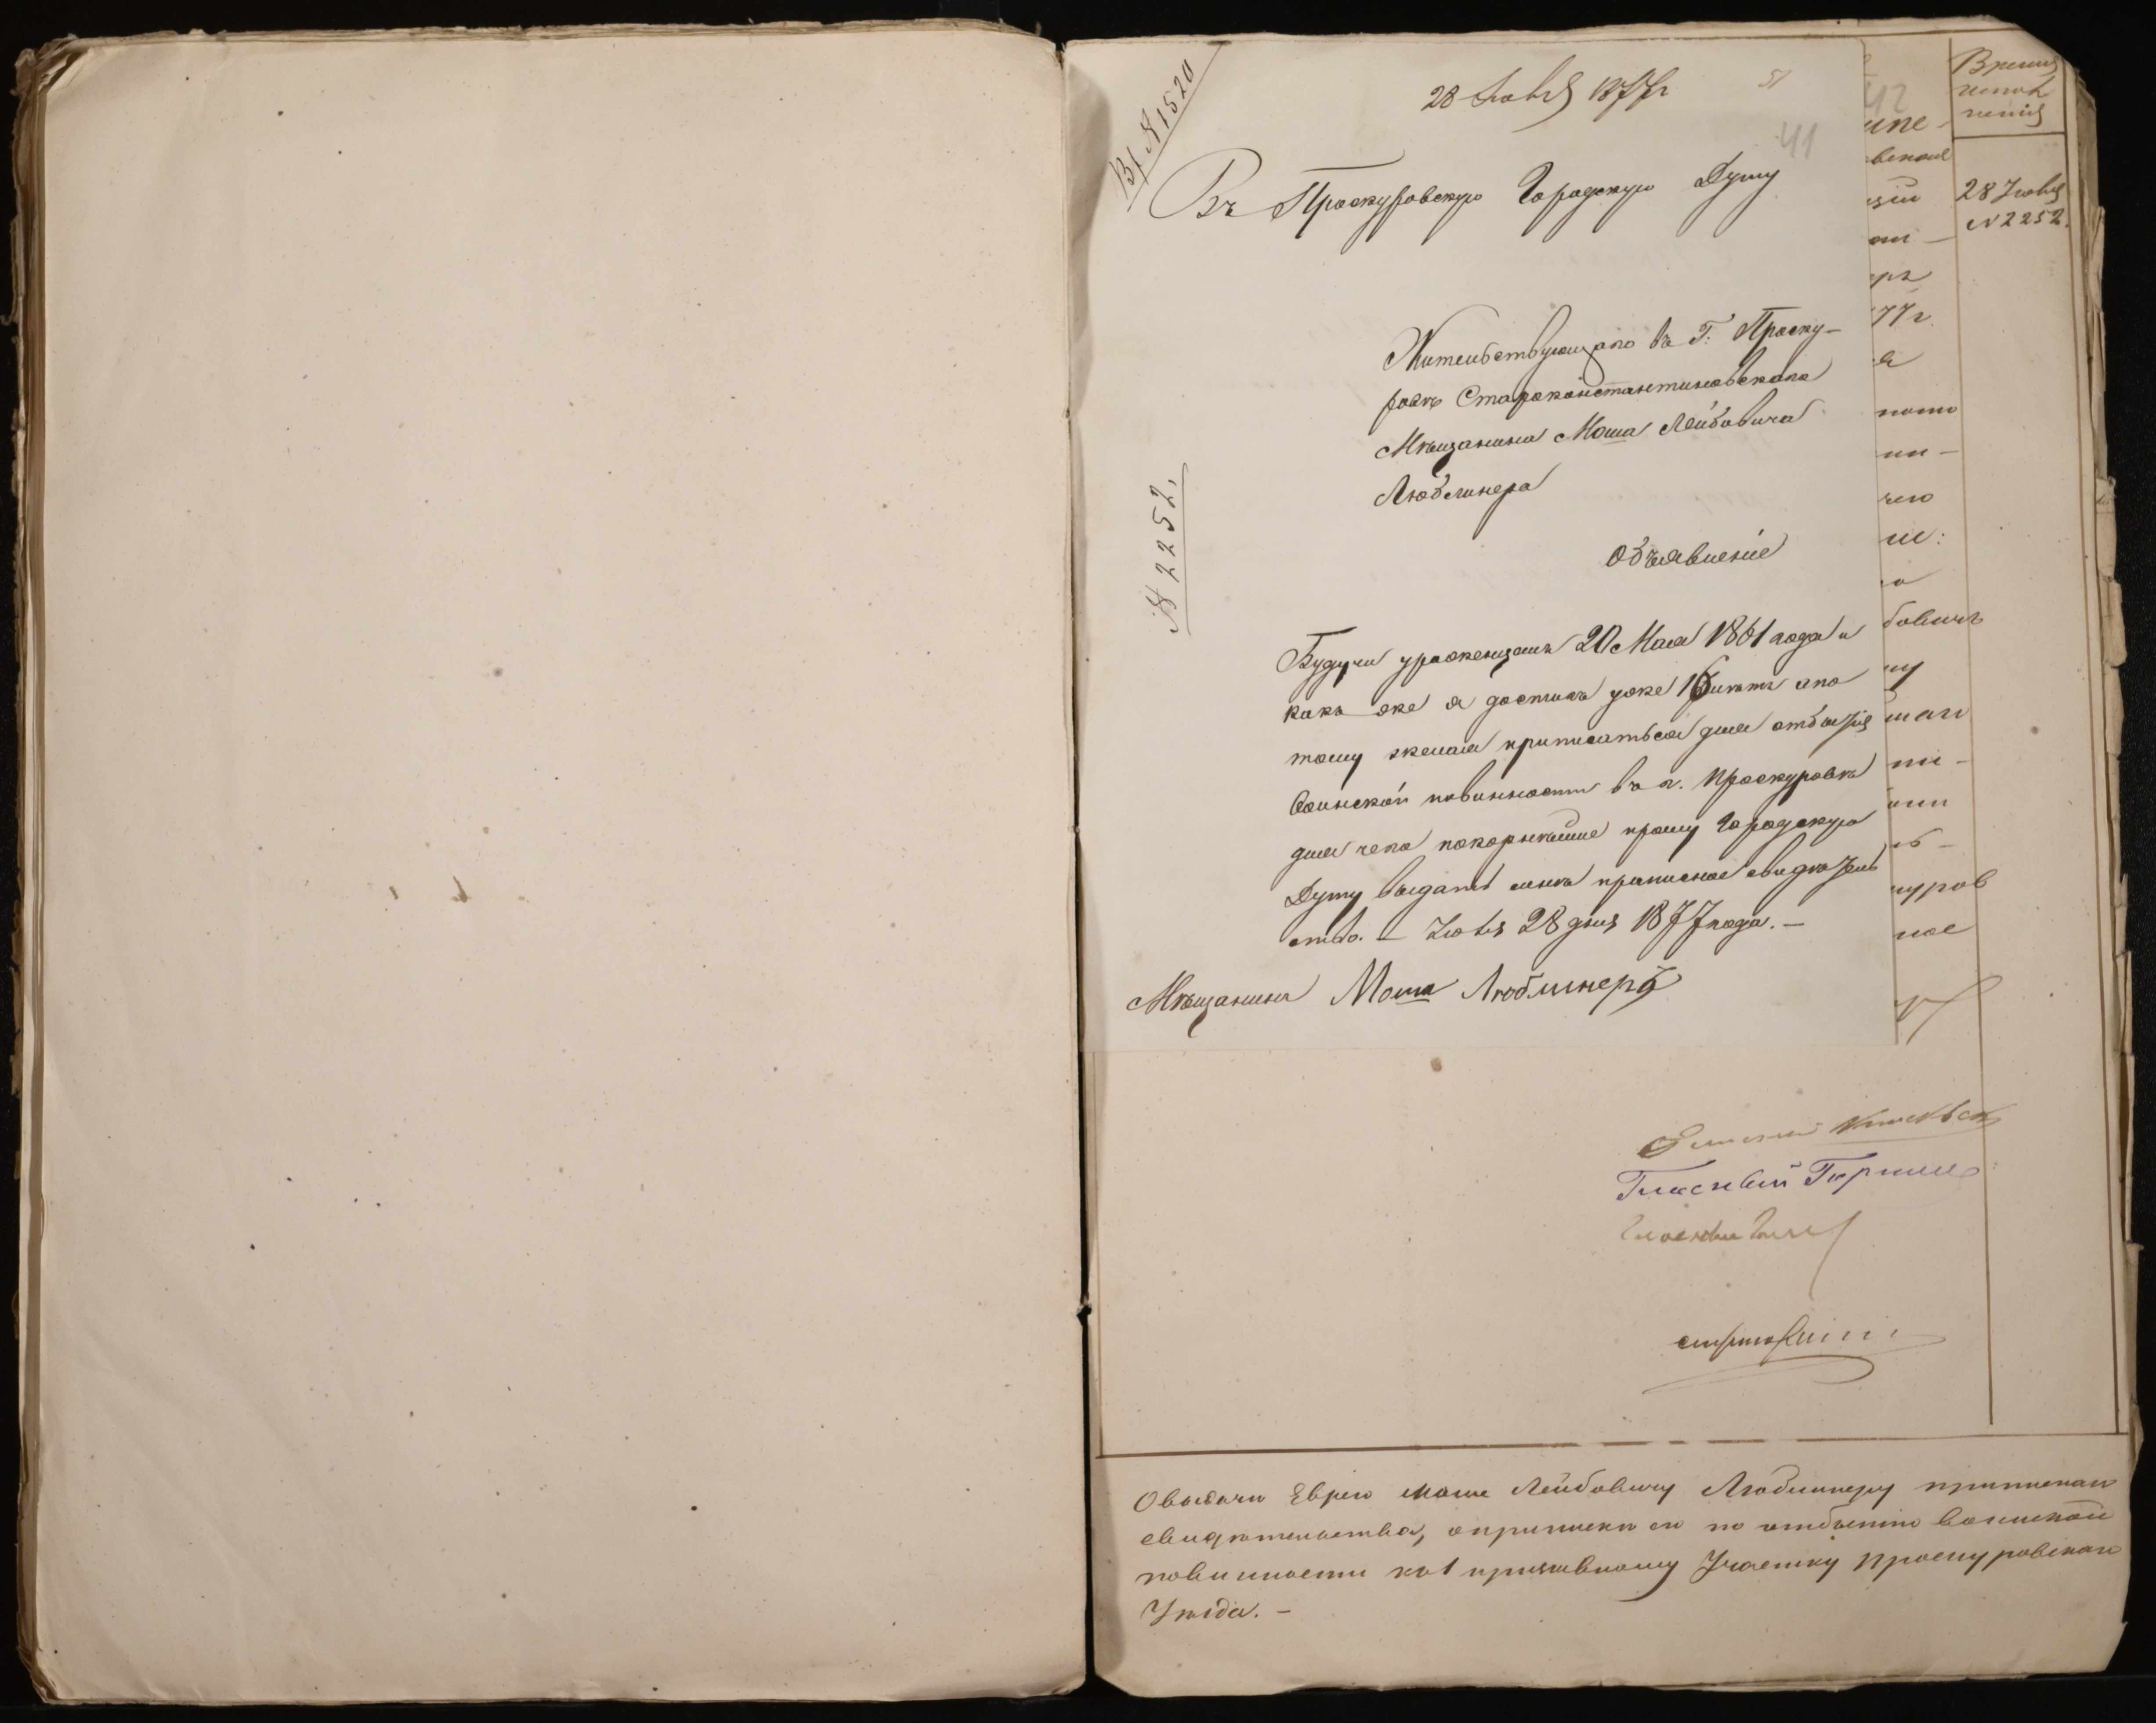 Вх №1520
28 Июля 1877 г
51
41
Въ Проскуровскую Городскую Думу
№ 2252.
Жительствующаго въ Г: Проску-
ровѣ Староконстантиновскаго
Мѣщанина Моша Лейбовича
Люблинера
Объявленіе
Будучи уроженцемъ 20 Мая 1861 года и
какъ же я достигъ уже 16 лѣтъ а по
тому желая приписаться для отбытія
воинской повинности въ г. Проскуровѣ
для чего покорнѣйше прошу Городскую
Думу выдать мнѣ приписное свидѣтель
ство. — Іюля 28 дня 1877 года. —
Мѣщанинъ Моша Люблинеръ
42
Время
испол
ненія
28 Іюля
№ 2252.
77 г.
бовичъ
куров
ное
Гласный
О выдачи Еврею Моше Лейбовичу Люблинеру приписнаго
свидѣтельства, о приписки его по отбытію воинской
повинности къ 1 призывному Участку Проскуровскаго
Уѣзда. —